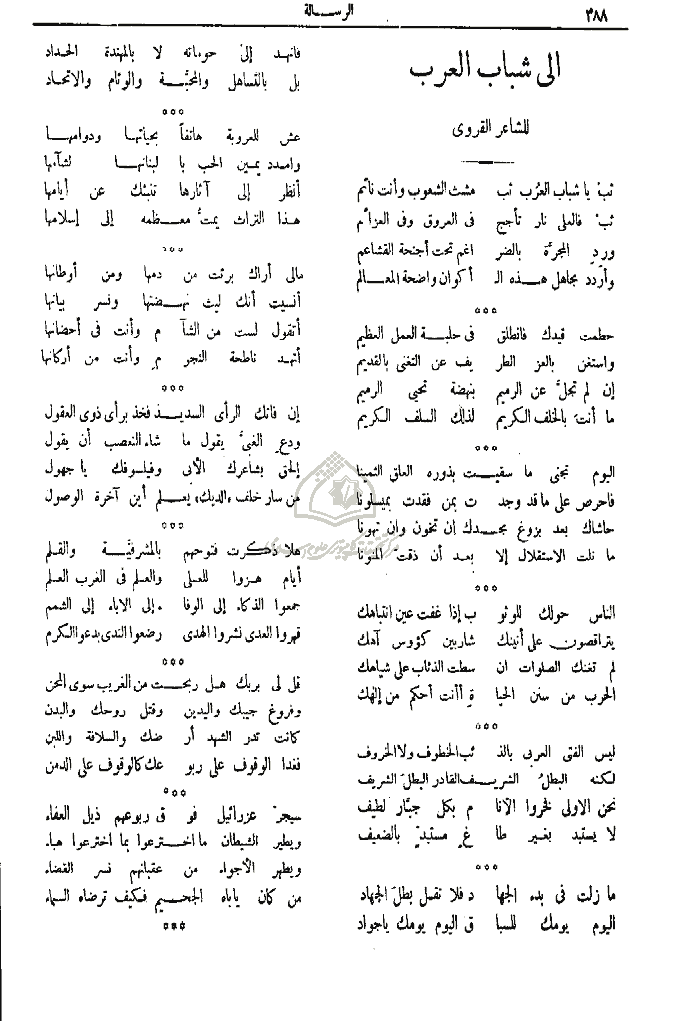 ٣٨٨
الرسالة
الى شباب العرب
للشاعر القروى
ثب يا شباب العُرْب ثب مشت الشعوب وأنت نائم
ثب فالعلى نار تأجج فى العروق وفى العزائم
ورد المجرّة بالضر اغم تحت أجنحة القشاعم
وأردد مجاهل هذه الـ أكوان واضحة المعالم
***
حطمت قيدك فانطلق فى حلبة العمل العظيم
واستغن بالعز الطر يف عن التغنى بالقديم
إن لم تجلَّ عن الرميم بنهضة تحيى الرميم
ما أنت بالخلف الكريم لذلك السلف الكريم
***
اليوم تجنى ما سقيت بذوره العلق الثمينا
فاحرص على ما قد وجد ت بمن فقدت بميلونا
حاشاك بعد بزوغ مجدك ان تخون وان تهونا
ما نلت الاستقلال إلا بعد أن ذقت المنونا
***
الناس حولك للوثو ب إذا غفت عين انتباهك
يتراقصون على أنينك شاربين كؤوس آهك
لم تغنك الصلوات ان سطت الذئاب على شياهك
الحرب من سنن الحيا ة أأنت أحكم من إلهك
***
ليس الفتى العربى بالذ ئب الخطوف ولا الخروف
لكنه البطلُ الشريف القادر البطل الشريف
نحن الاولى فخروا الأنا م بكل جبَّار لطيف
لا يستبد بغير طا غٍ مستبدّ بالضعيف
***
ما زلت فى بدء الجها د فلا تقل بطل الجهاد
اليوم يومك للسبا ق اليوم يومك ياجواد
فانهد إلى حوماته لا بالمهندة الحداد
بل بالتساهل والمحبَّة والوئام والاتحاد
***
عش للعروبة هاتفاً بحياتها ودوامها
وامدد يمين الحب يا لبنانها لشآمها
أنظر إلى آثارها تنبئك عن أيامها
هذا التراث يمتُّ معظمه إلى إسلامها
***
مالى أراك برئت من دمها ومن أوطانها
أنسيت أنك ليث نهضتها ونسر بيانها
أتقول لست من الشآ م وأنت فى أحضانها
أتهد ناطحة النجو م وأنت من أركانها
***
إن فاتك الرأى السديد فخذ برأى ذوى العقول
ودع الغىَّ يقول ما شاء التعصب أن يقول
إلحق بشاعرك الأبى وفيلسوفك يا جهول
من سار خلف «الديك» يعلم أين آخرة الوصول
***
هلا ذكرت فتوحهم بالمشرفيَّة والقلم
أيام هزوا للعلى والعلم فى الغرب العلم
جمعوا الذكاء إلى الوفا ء إلى الاباء إلى الشمم
قهروا العدى نشروا الهدى رضعوا الندى بدعوا الكرم
***
قل لى بربك هل ربحت من الغريب سوى المحن
وفروغ جيبك واليدين وقتل روحك والبدن
كانت تدر الشهد أر ضك والسلافة واللبن
فغدا الوقوف على ربو عك كالوقوف على الدمن
***
سيجرّ عزرائيل فو ق ربوعهم ذيل العفاء
ويطير الشيطان ما اخترعوا بما اخترعوا هباء
ويطهر الأجواء من عقبانهم نسر القضاء
من كان ياباه الجحيم فكيف ترضاه السماء
***